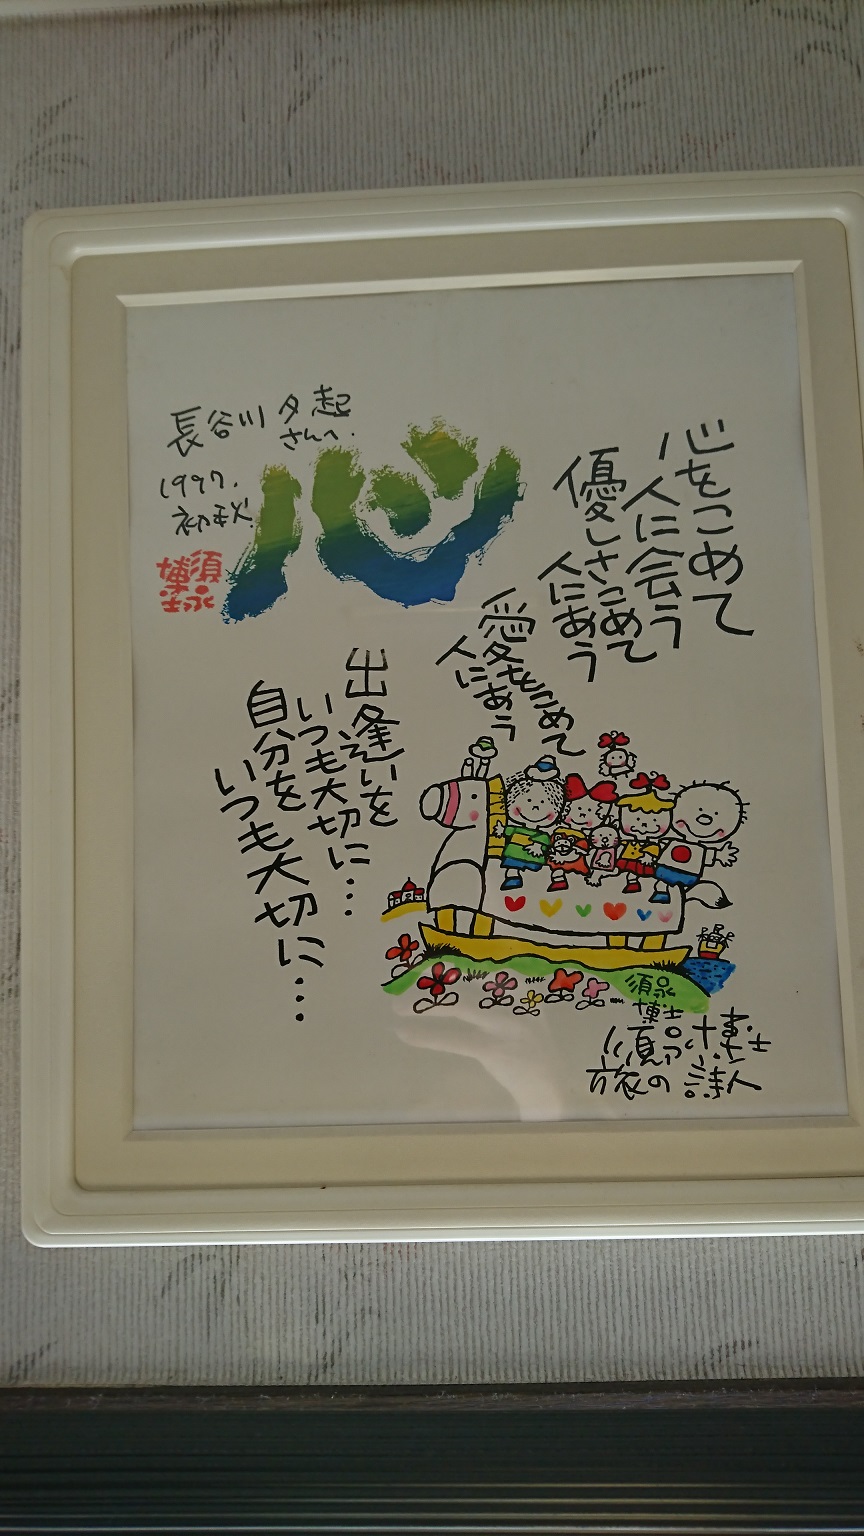 心をこめて
人に会う
優しさこめて
人にあう
愛をこめて
人にあう
心
長谷川夕起
さんへ.
1997.
初秋
須永
博士
出逢いを
いつも大切に…
自分を
いつも大切に…
須永
博士
須永博士
旅の詩人